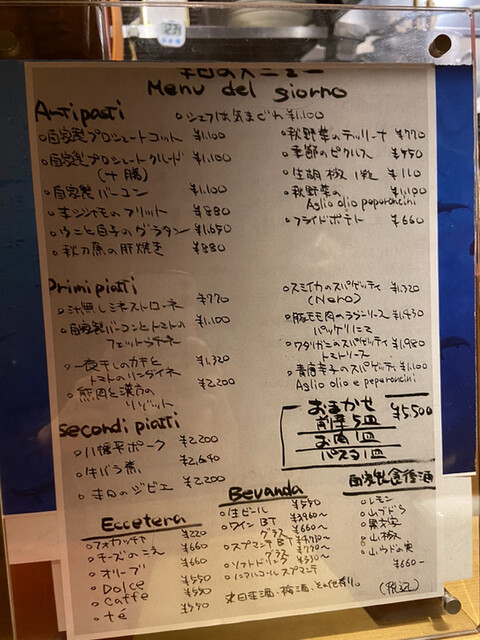 本日のメニュー
Menu del giorno
Antipasti
○シェフは気まぐれ ¥1.100
○自家製プロシュートコット ¥1.100
○自家製プロシュートクルード ¥1.100
(十勝)
○自家製ベーコン ¥1.100
○本シシャモのフリット ¥880
○ウニと白子のグラタン ¥1,650
○秋刀魚の肝焼き ¥880
○秋野菜のテリーナ ¥770
○季節のピクルス ¥450
○生胡椒 1粒 ¥110
○秋野菜の ¥1,100
Aglio olio peperoncini
○フライドポテト ¥660
Primi piatti
○汁無しミネストローネ ¥770
○自家製ベーコンとトマトの ¥1,100
フェットチーネ
○一夜干しのカキと ¥1,320
トマトのリングイネ
○熊肉と漢方の ¥2,200
リゾット
○スミイカのスパゲッティ ¥1,320
(Nero)
○豚モモ肉のラグーソース ¥1,430
パッケリにて
○ワタリガニのスパゲッティ ¥1,980
トマトソース
○青唐辛子のスパゲッティ ¥1,100
Aglio olio e peperoncini
Secondi piatti
○八幡平ポーク ¥2,200
○牛バラ煮 ¥2,640
○本日のジビエ ¥2,200
おまかせ ¥5,500
前菜5皿
お肉1皿
パスタ1皿
Eccetera
○フォカッチャ ¥220
○チーズのこえ ¥660
○オリーブ ¥660
○Dolce ¥550
○Caffe ¥550
○té
Bevanda
○生ビール ¥550
○ワイン BT ¥3,960〜
グラス ¥660〜
○スプマンテ BT
グラス ¥770〜
○ソフトドリンク ¥330〜
○ノンアルコールスプマンテ
自家製食後酒
○レモン
○山ブドウ
○山椒
○山ウドの実
¥660-
(税込)